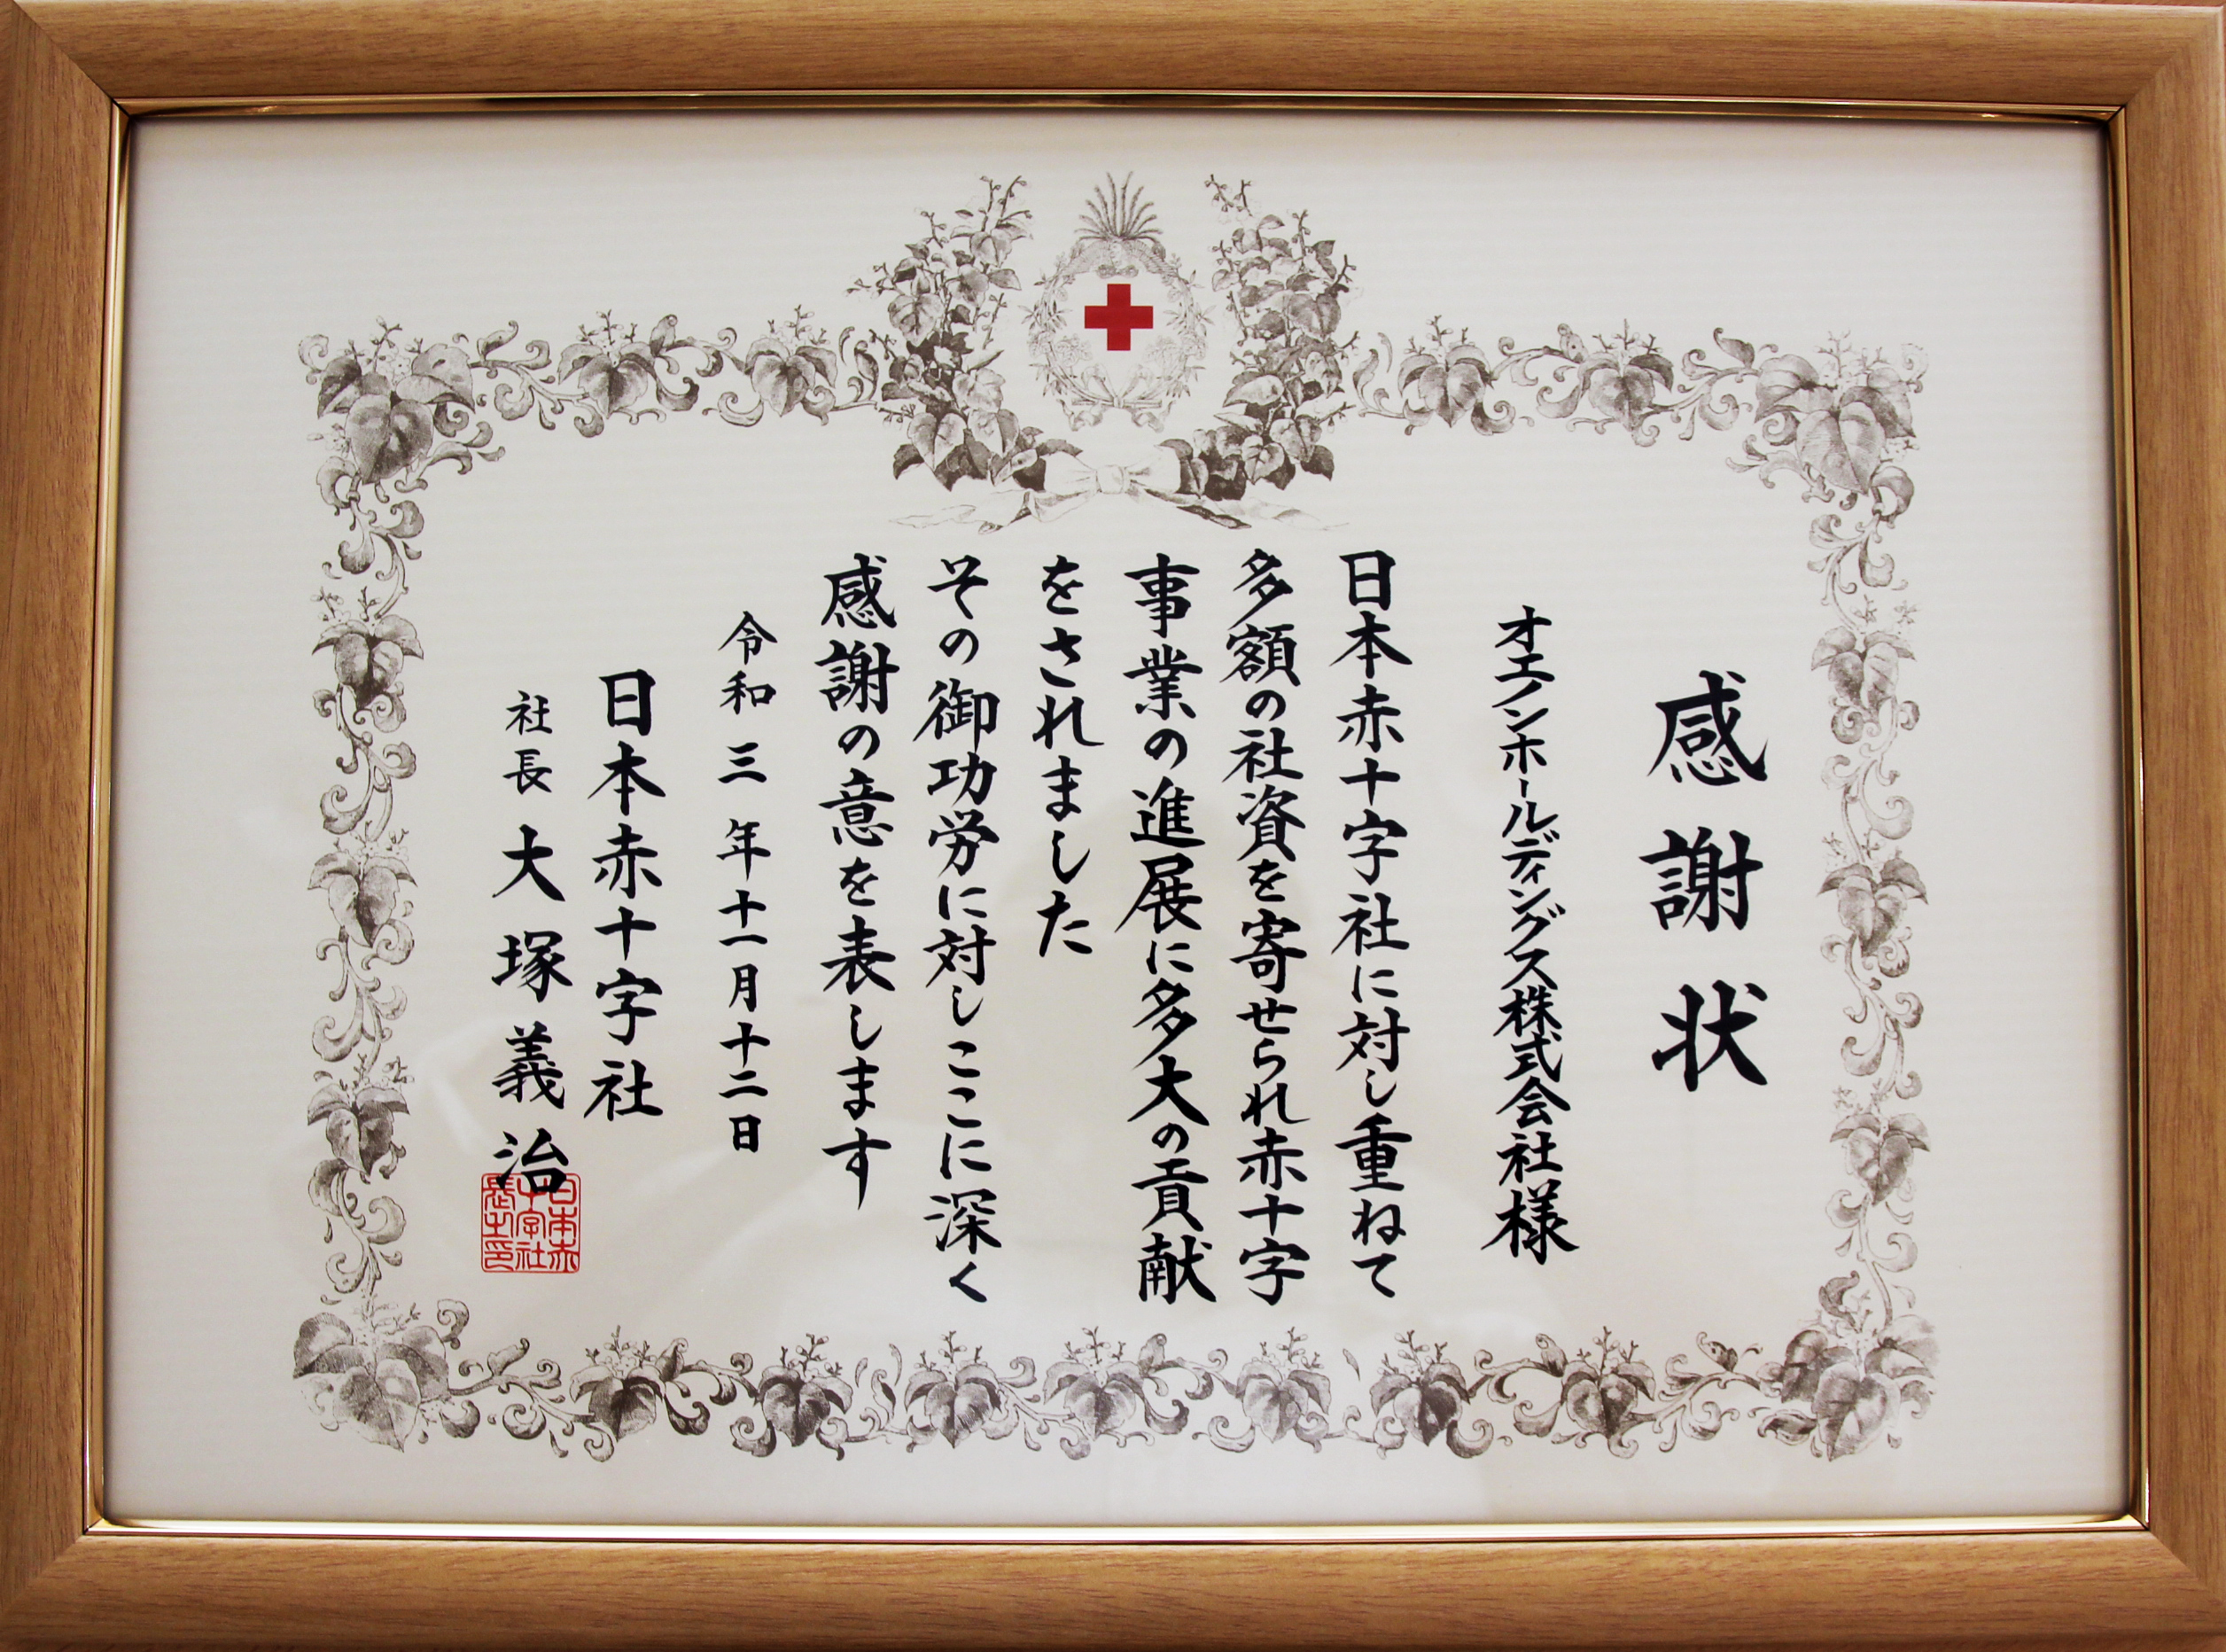 感謝状
オエノンホールディングス株式会社様
日本赤十字社に対し重ねて
多額の社資を寄せられ赤十字
事業の進展に多大の貢献
をされました
その御功労に対しここに深く
感謝の意を表します
令和三年十一月十二日
日本赤十字社
社長 大塚義治
日本赤
十字社
長之印